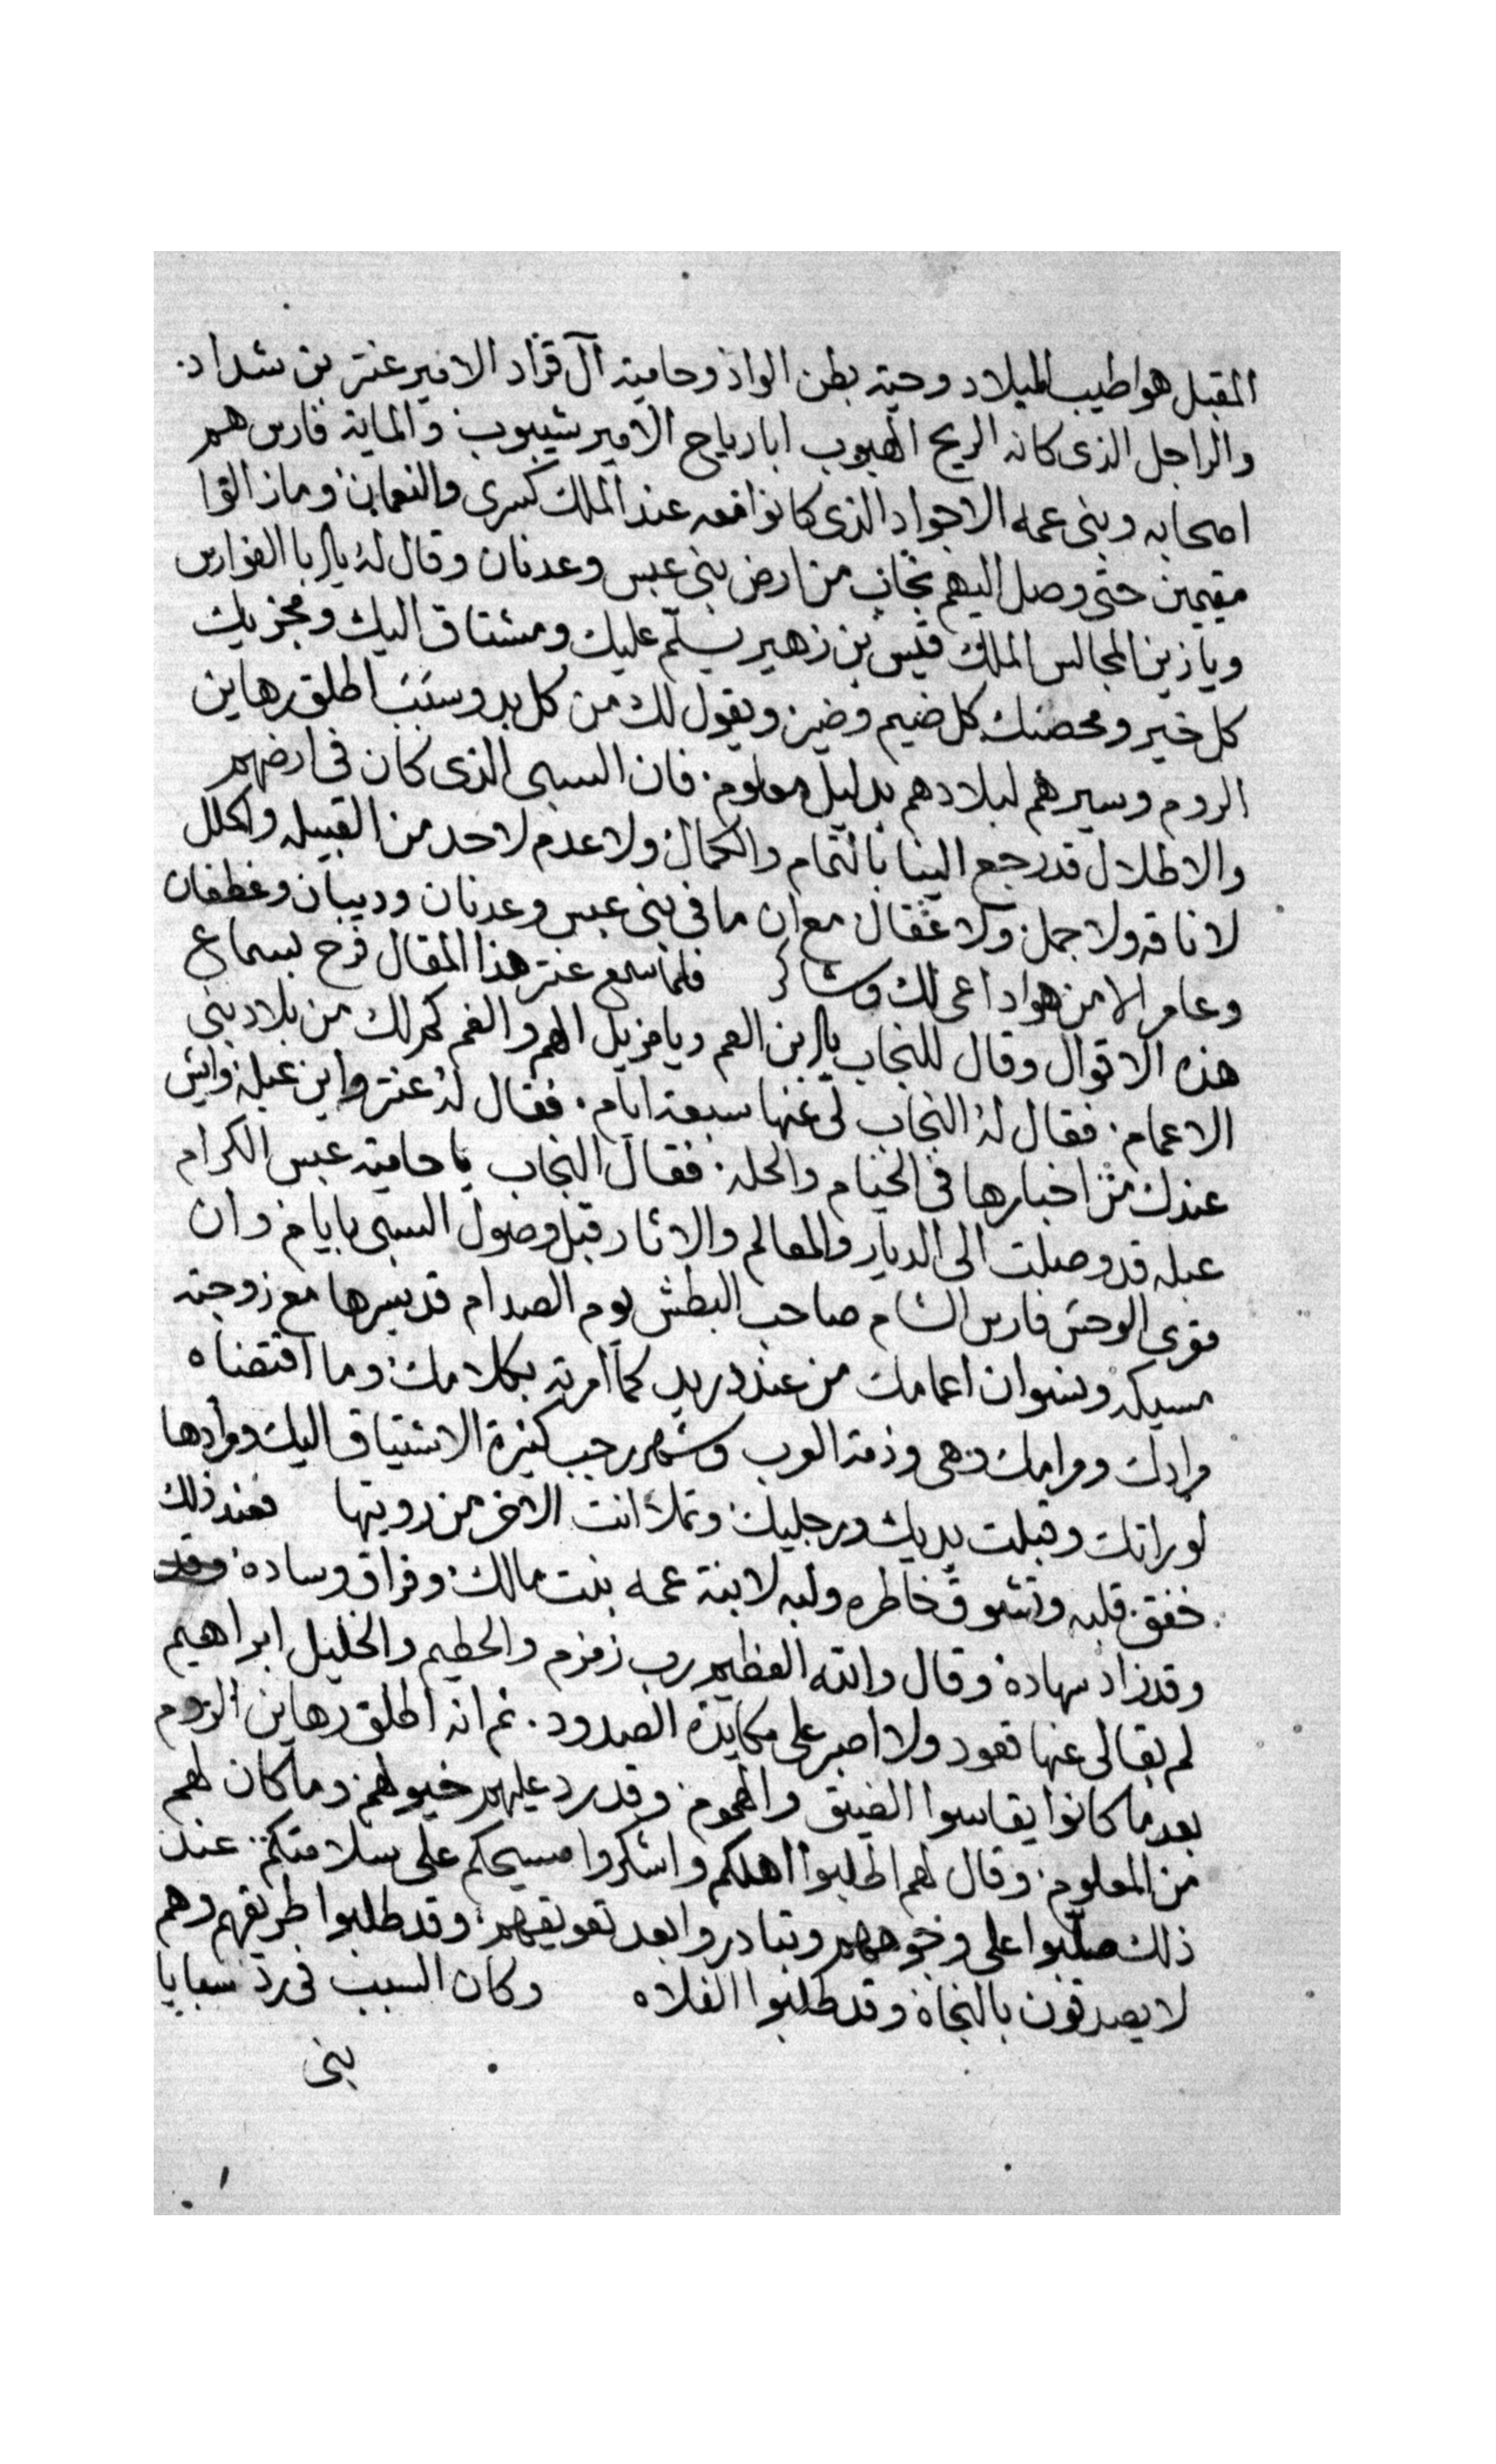 المقبل هو اطيب الميلاد وحية بطن الواد وحامية آل قراد الامير عنتر بن شداد.
والراجل الذى كانه الريح الهبوب ابا رياح الامير شيبوب والماية فارس هم
اصحابه وبنى عمه الاجواد الذى كانوا معه عند الملك كسرى والنعمان وما زالوا
مقيمين حتى وصل اليهم نجاب من ارض بنى عبس وعدنان وقال له يا ابا الفوارس
ويا زين المجالس الملك قيس بن زهير يسلم عليك ومشتاق اليك ومجزيك
كل خير ومحصنك كل ضيم وضير ويقول لك من كل بد وسبب اطلق رهاين
الروم وسيرهم لبلادهم بدليل معلوم. فان السبى الذى كان فى ارضهم
والاطلال قد رجع الينا بالتمام والكمال ولا عدم لاحد من القبيله والحلل
لا ناقه ولا جمل ولا عقال مع ان ما فى بنى عبس وعدنان وديبان وغطفان
وعامر الا من هو داعى لك وشاكر فلما سمع عنتر هذا المقال فرح بسماع
هذه الاقوال وقال للنجاب يا ابن العم ويا مزيل الهم والغم كم لك من بلاد بنى
الاعمام. فقال له النجاب لى عنها سبعة ايام. فقال له عنتر واين عبله وايش
عندك من اخبارها فى الخيام والحله. فقال النجاب يا حامية عبس الكرام
عبله قد وصلت الى الديار والمعالم والاثار قبل وصول السبى بايام وان
مقرى الوحش فارس الشام صاحب البطش يوم الصدام قد سيرها مع زوجته
مسيكه ونسوان اعمامك من عند دريد كما امرته بكلامك وما اقتضاه
مرادك ومرامك وهى وذمة العرب وشهر رجب كثيرة الاشتياق اليك ومرادها
لو راتك وقبلت يديك ورجليك وتملا انت الاخر من رويتها فعند ذلك
خفق قلبه وتشوق خاطره ولبه لابنة عمه بنت مالك وفراق وساده وقد
وقد زاد سهاده وقال والله العظيم رب زمزم والحطيم والخليل ابراهيم
لم بقا لى عنها قعود ولا اصبر على مكايدة الصدود. ثم انه اطلق رهاين الروم
بعد ما كانوا يقاسوا الضيق والهموم وقد رد عليهم خيولهم وما كان لهم
من المعلوم وقال لهم اطلبوا اهلكم واشكروا مسيحكم على سلامتكم. عند
ذلك صلبوا على وجوههم وتبادروا بعد تعويقهم وقد طلبوا طريقهم وهم
لا يصدقون بالنجاة وقد طلبوا الفلاه وكان السبب فى رد سبايا
بنى